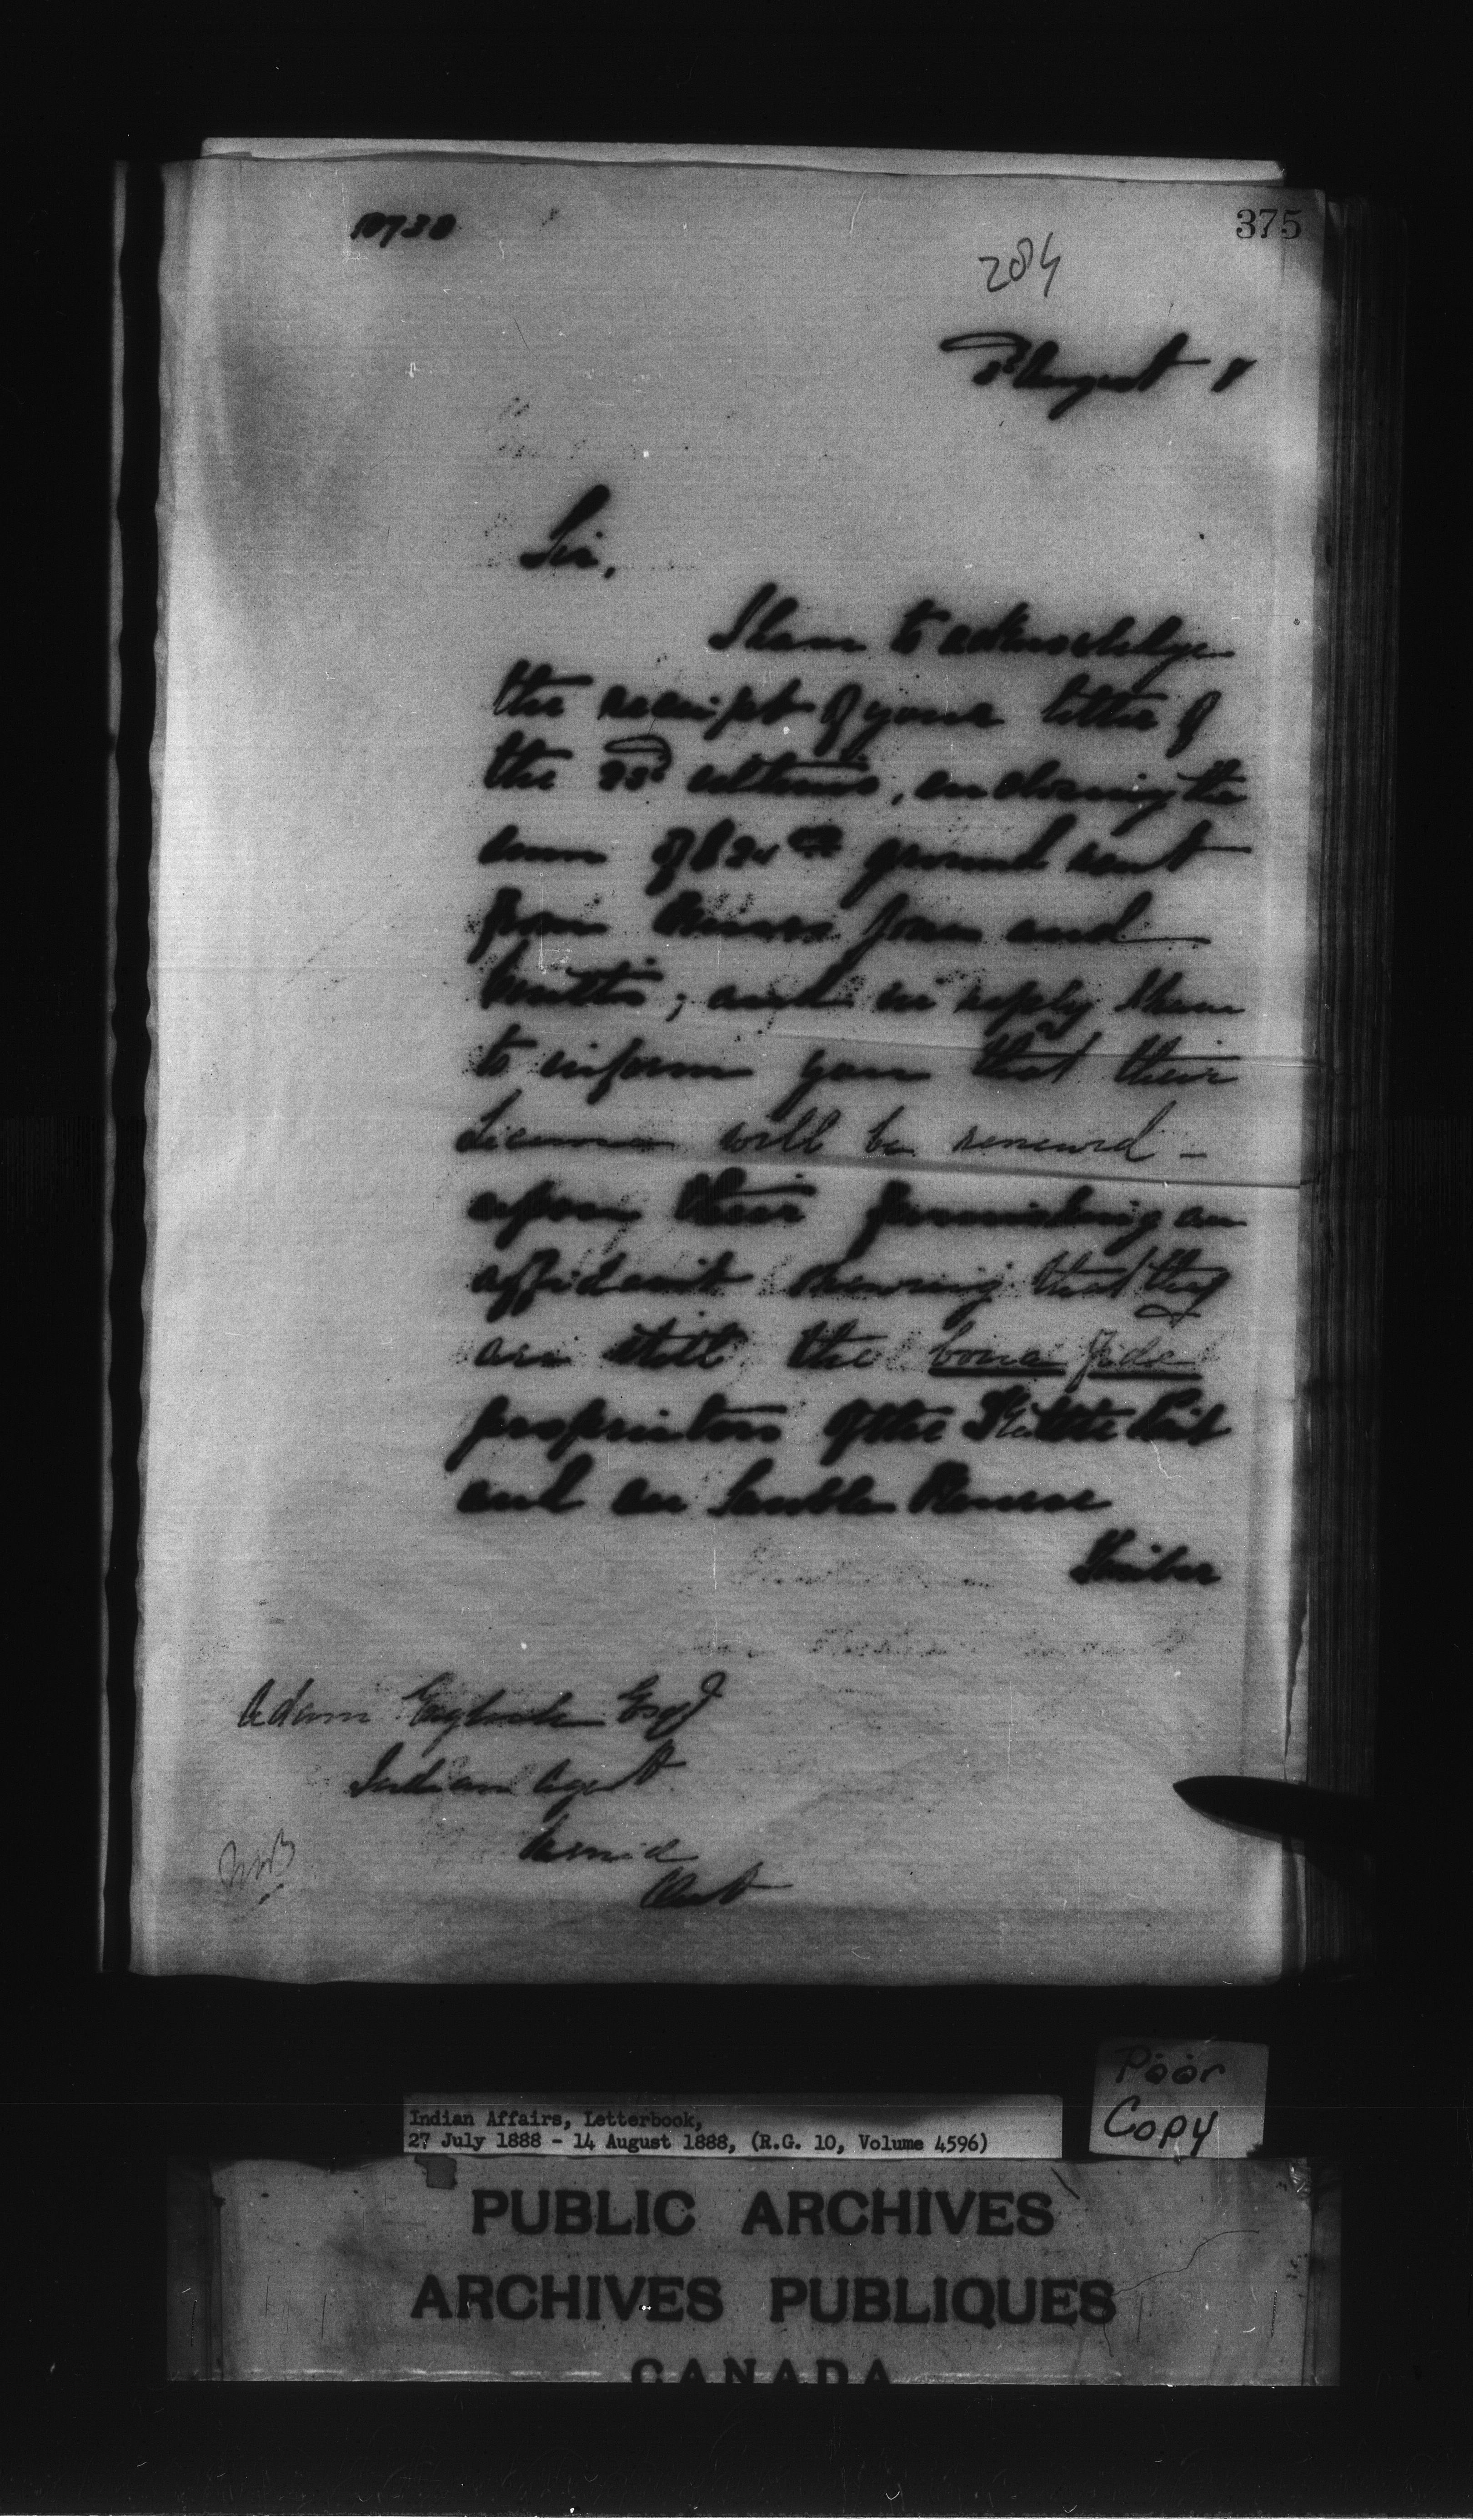 375
204
August 8
Sir,
I have to acknowledge
the receipt of your letter of
the ultimo, enclosing the
sum of ground rent
from and
; and in reply I have
to inform you that their
License will be renewed -
upon their furnishing an
affidavit shewing that they
are still the bona fide
proprietors of the
and au Sauble
Adam Esqr
Indian Agent
Sarnia
Ont
Poor
Copy
Indian Affairs, Letterbook,
27 July 1888 - 14 August 1888, (R.G. 10, Volume 4596)
PUBLIC ARCHIVES
ARCHIVES PUBLIQUES
CANADA